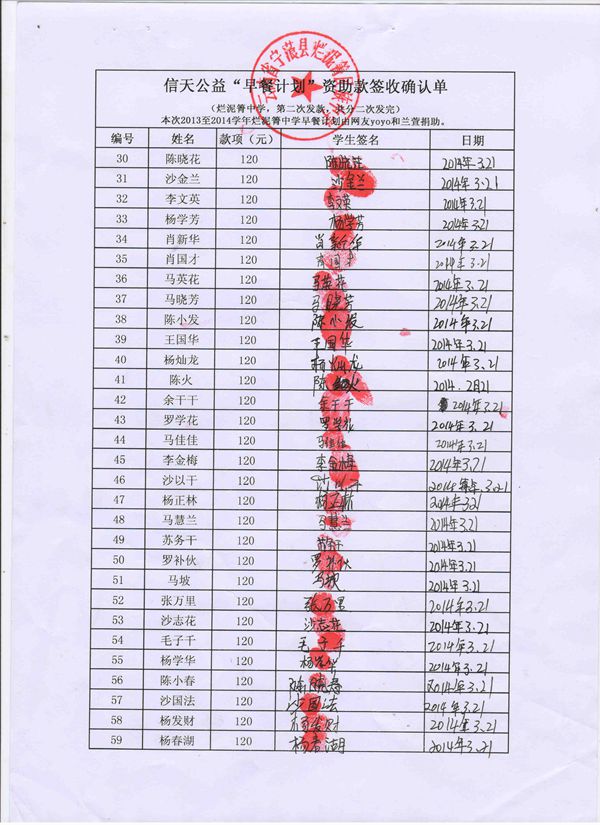 信天公益“早餐计划”资助款签收确认单
(烂泥箐中学，第二次发款，共分二次发完)
本次2013至2014学年烂泥箐中学早餐计划由网友yoyo和兰萱捐助。
编号 姓名 款项（元） 学生签名 日期
30 陈晓花 120 陈晓花 2014年3.21
31 沙金兰 120 沙金兰 2014年3.21
32 李文英 120 李文英 2014年3.21
33 杨学芳 120 杨学芳 2014年3.21
34 肖新华 120 肖新华 2014年3.21
35 肖国才 120 2014年3.21
36 马英花 120 马英花 2014年3.21
37 马晓芳 120 马晓芳 2014年3.21
38 陈小发 120 陈小发 2014年3.21
39 王国华 120 王国华 2014年3.21
40 杨灿龙 120 杨灿龙 2014年3.21
41 陈火 120 陈火 2014.2月21
42 余干干 120 余干干 2014年3.21
43 罗学花 120 罗学花 2014年3.21
44 马佳佳 120 马佳佳 2014年3.21
45 李金梅 120 李金梅 2014年3.21
46 沙以干 120 2014年3.21
47 杨正林 120 杨正林 2014年321
48 马慧兰 120 马慧兰 2014年3.21
49 苏务干 120 2014年3.21
50 罗补伙 120 罗补伙 2014年3.21
51 马坡 120 马坡 2014年3.21
52 张万里 120 张万里 2014年3.21
53 沙志花 120 沙志花 2014年3.21
54 毛子千 120 毛子千 2014年3.21
55 杨学华 120 杨学华 2014年3.21
56 陈小春 120 2014年3.21
57 沙国法 120 沙国法 2014年3.21
58 杨发财 120 杨发财 2014年3.21
59 杨春湖 120 杨春湖 2014年3.21